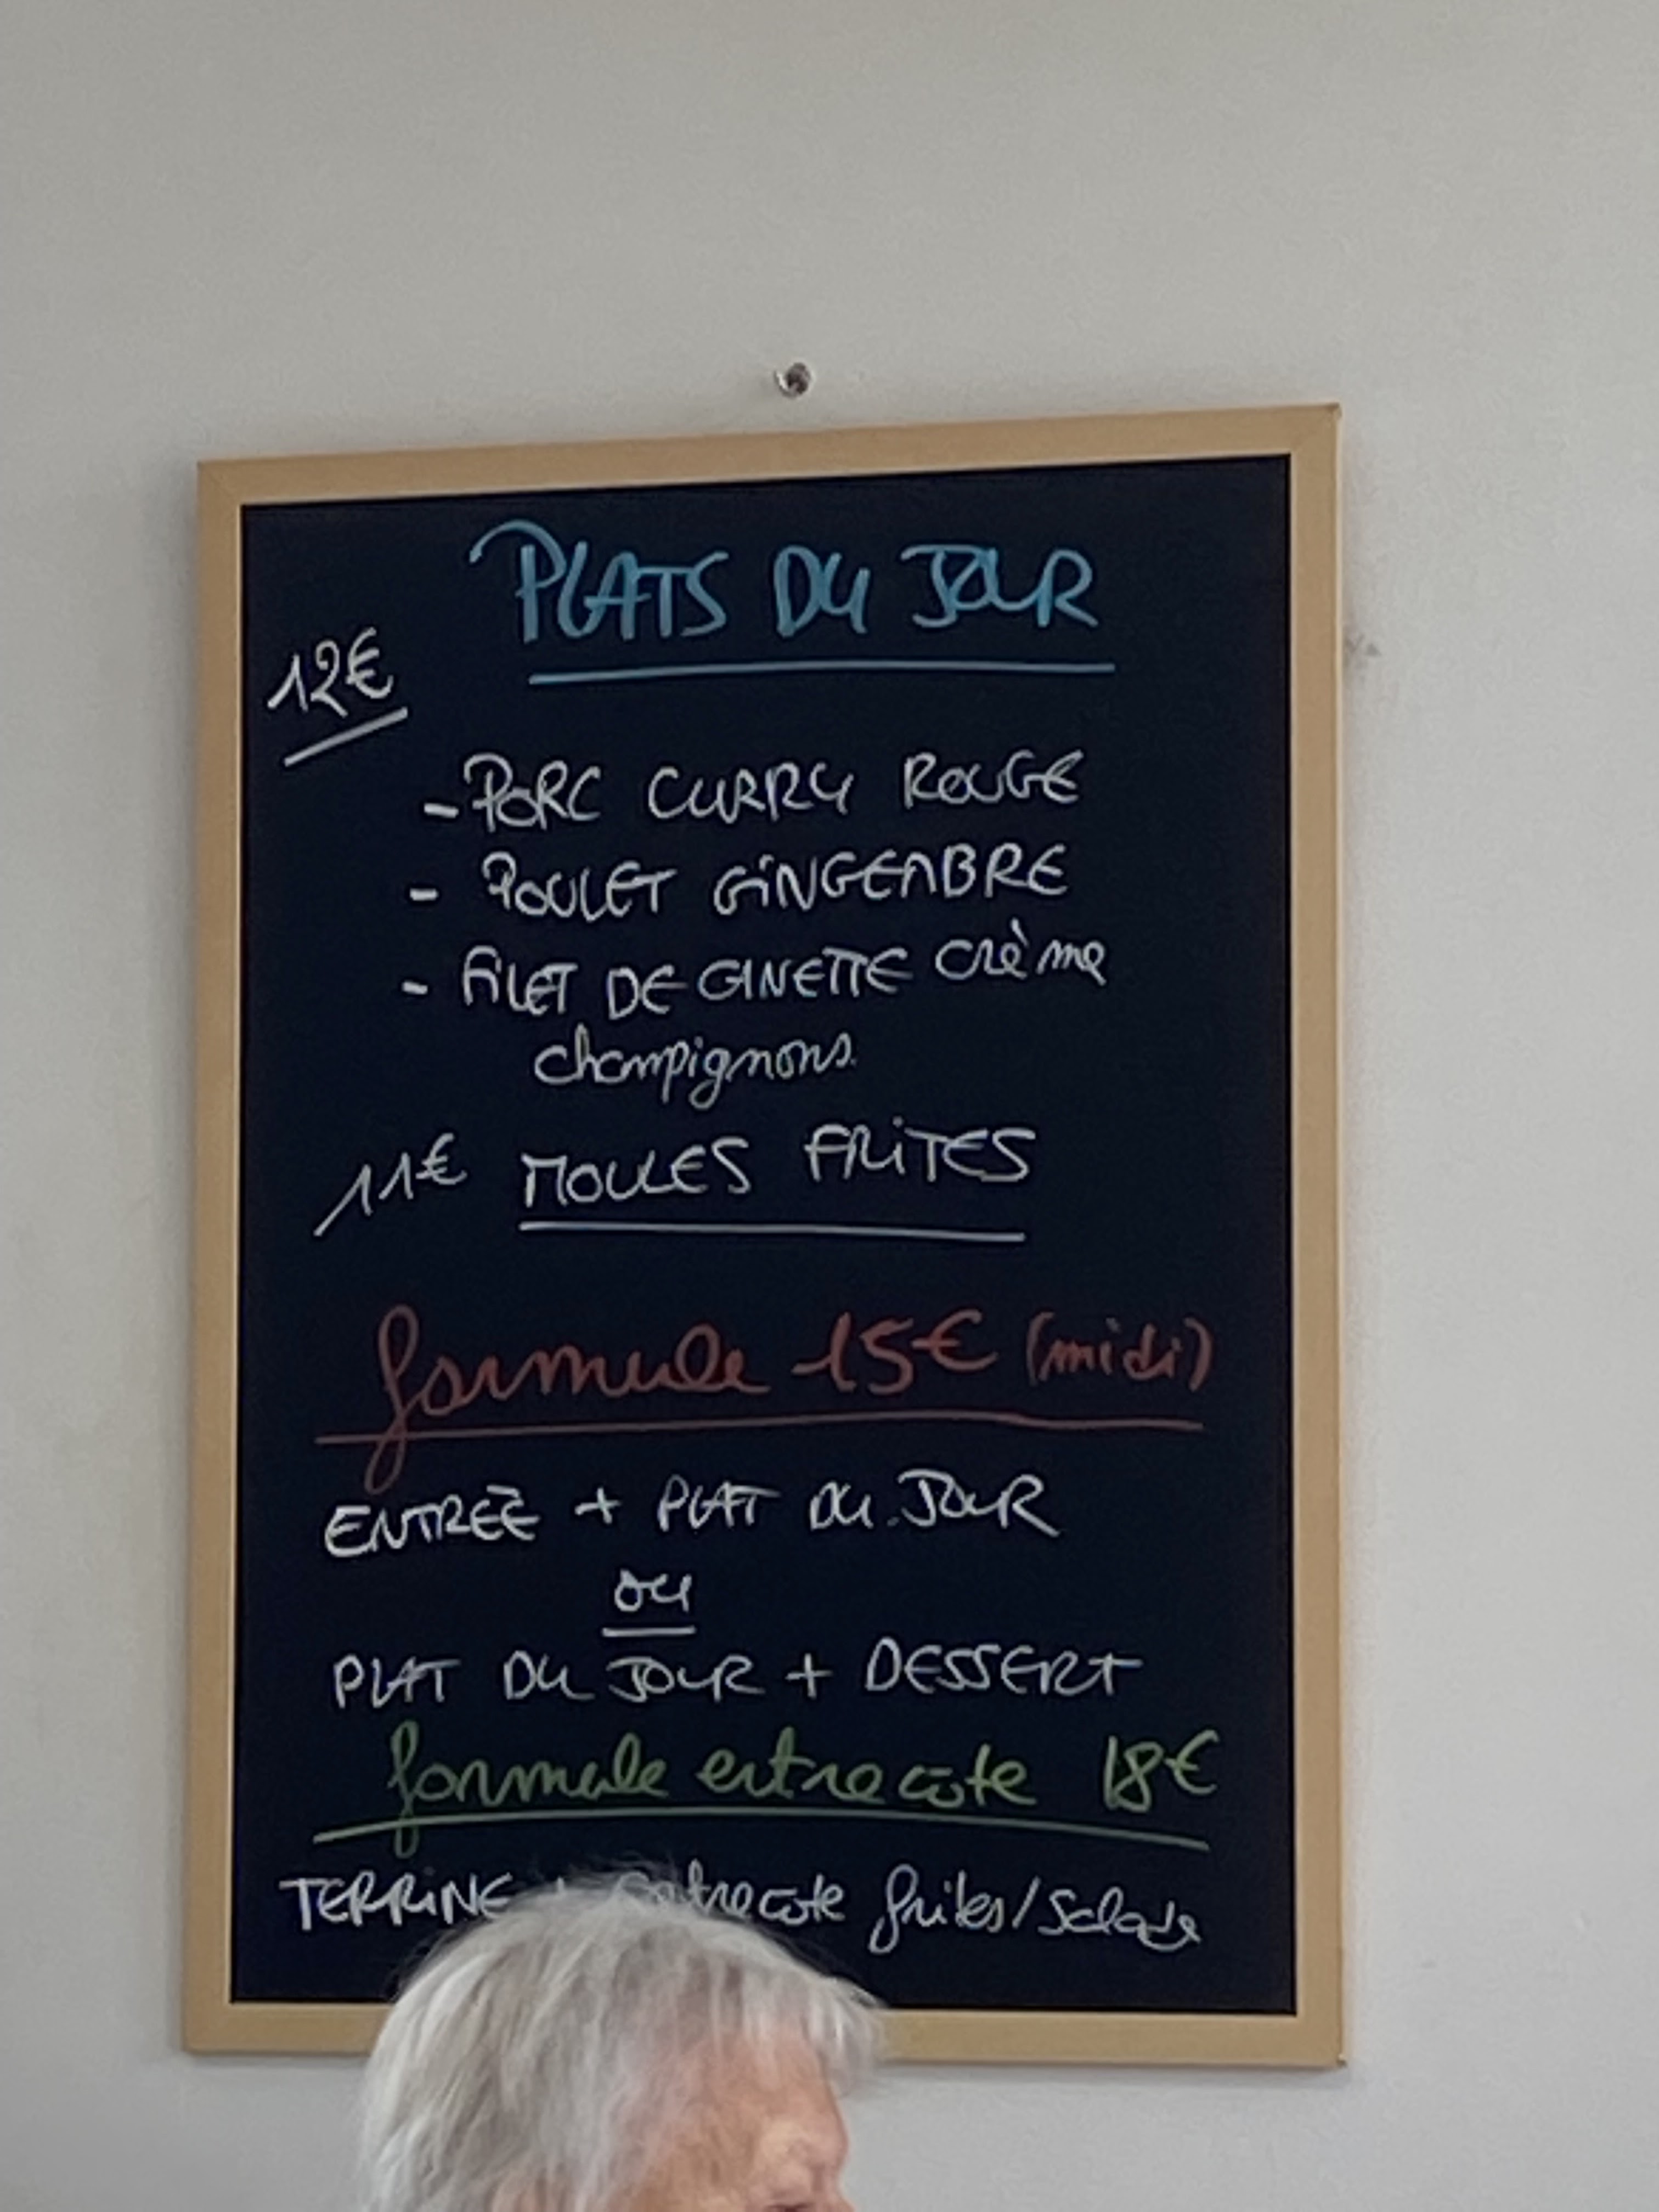 PLATS DU JOUR
12€
- PORC CURRY ROUGE
- POULET GINGEMBRE
- FILET DE GINETTE crème
champignons.
11€ MOULES FRITES
formule 15€ (midi)
ENTREE + PLAT DU JOUR
ou
PLAT DU JOUR + DESSERT
formule entrecôte 18€
TERRINE entrecote frites/Salade